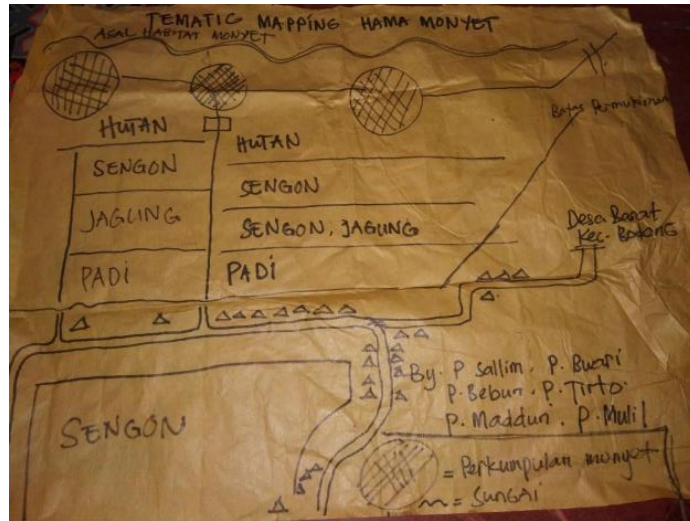 TEMATIC MAPPING HAMA MONYET
ASAL HABITAT MONYET
HUTAN
SENGON
JAGUNG
PADI
HUTAN
SENGON
SENGON, JAGUNG
PADI
Batas Permukiman
Desa
Kec.
SENGON
By. P Sallim. P. Buari
P. Bebun. P. Tirto.
P. Madduri. P. Mulil
= Perkumpulan monyet
= SUNGAI